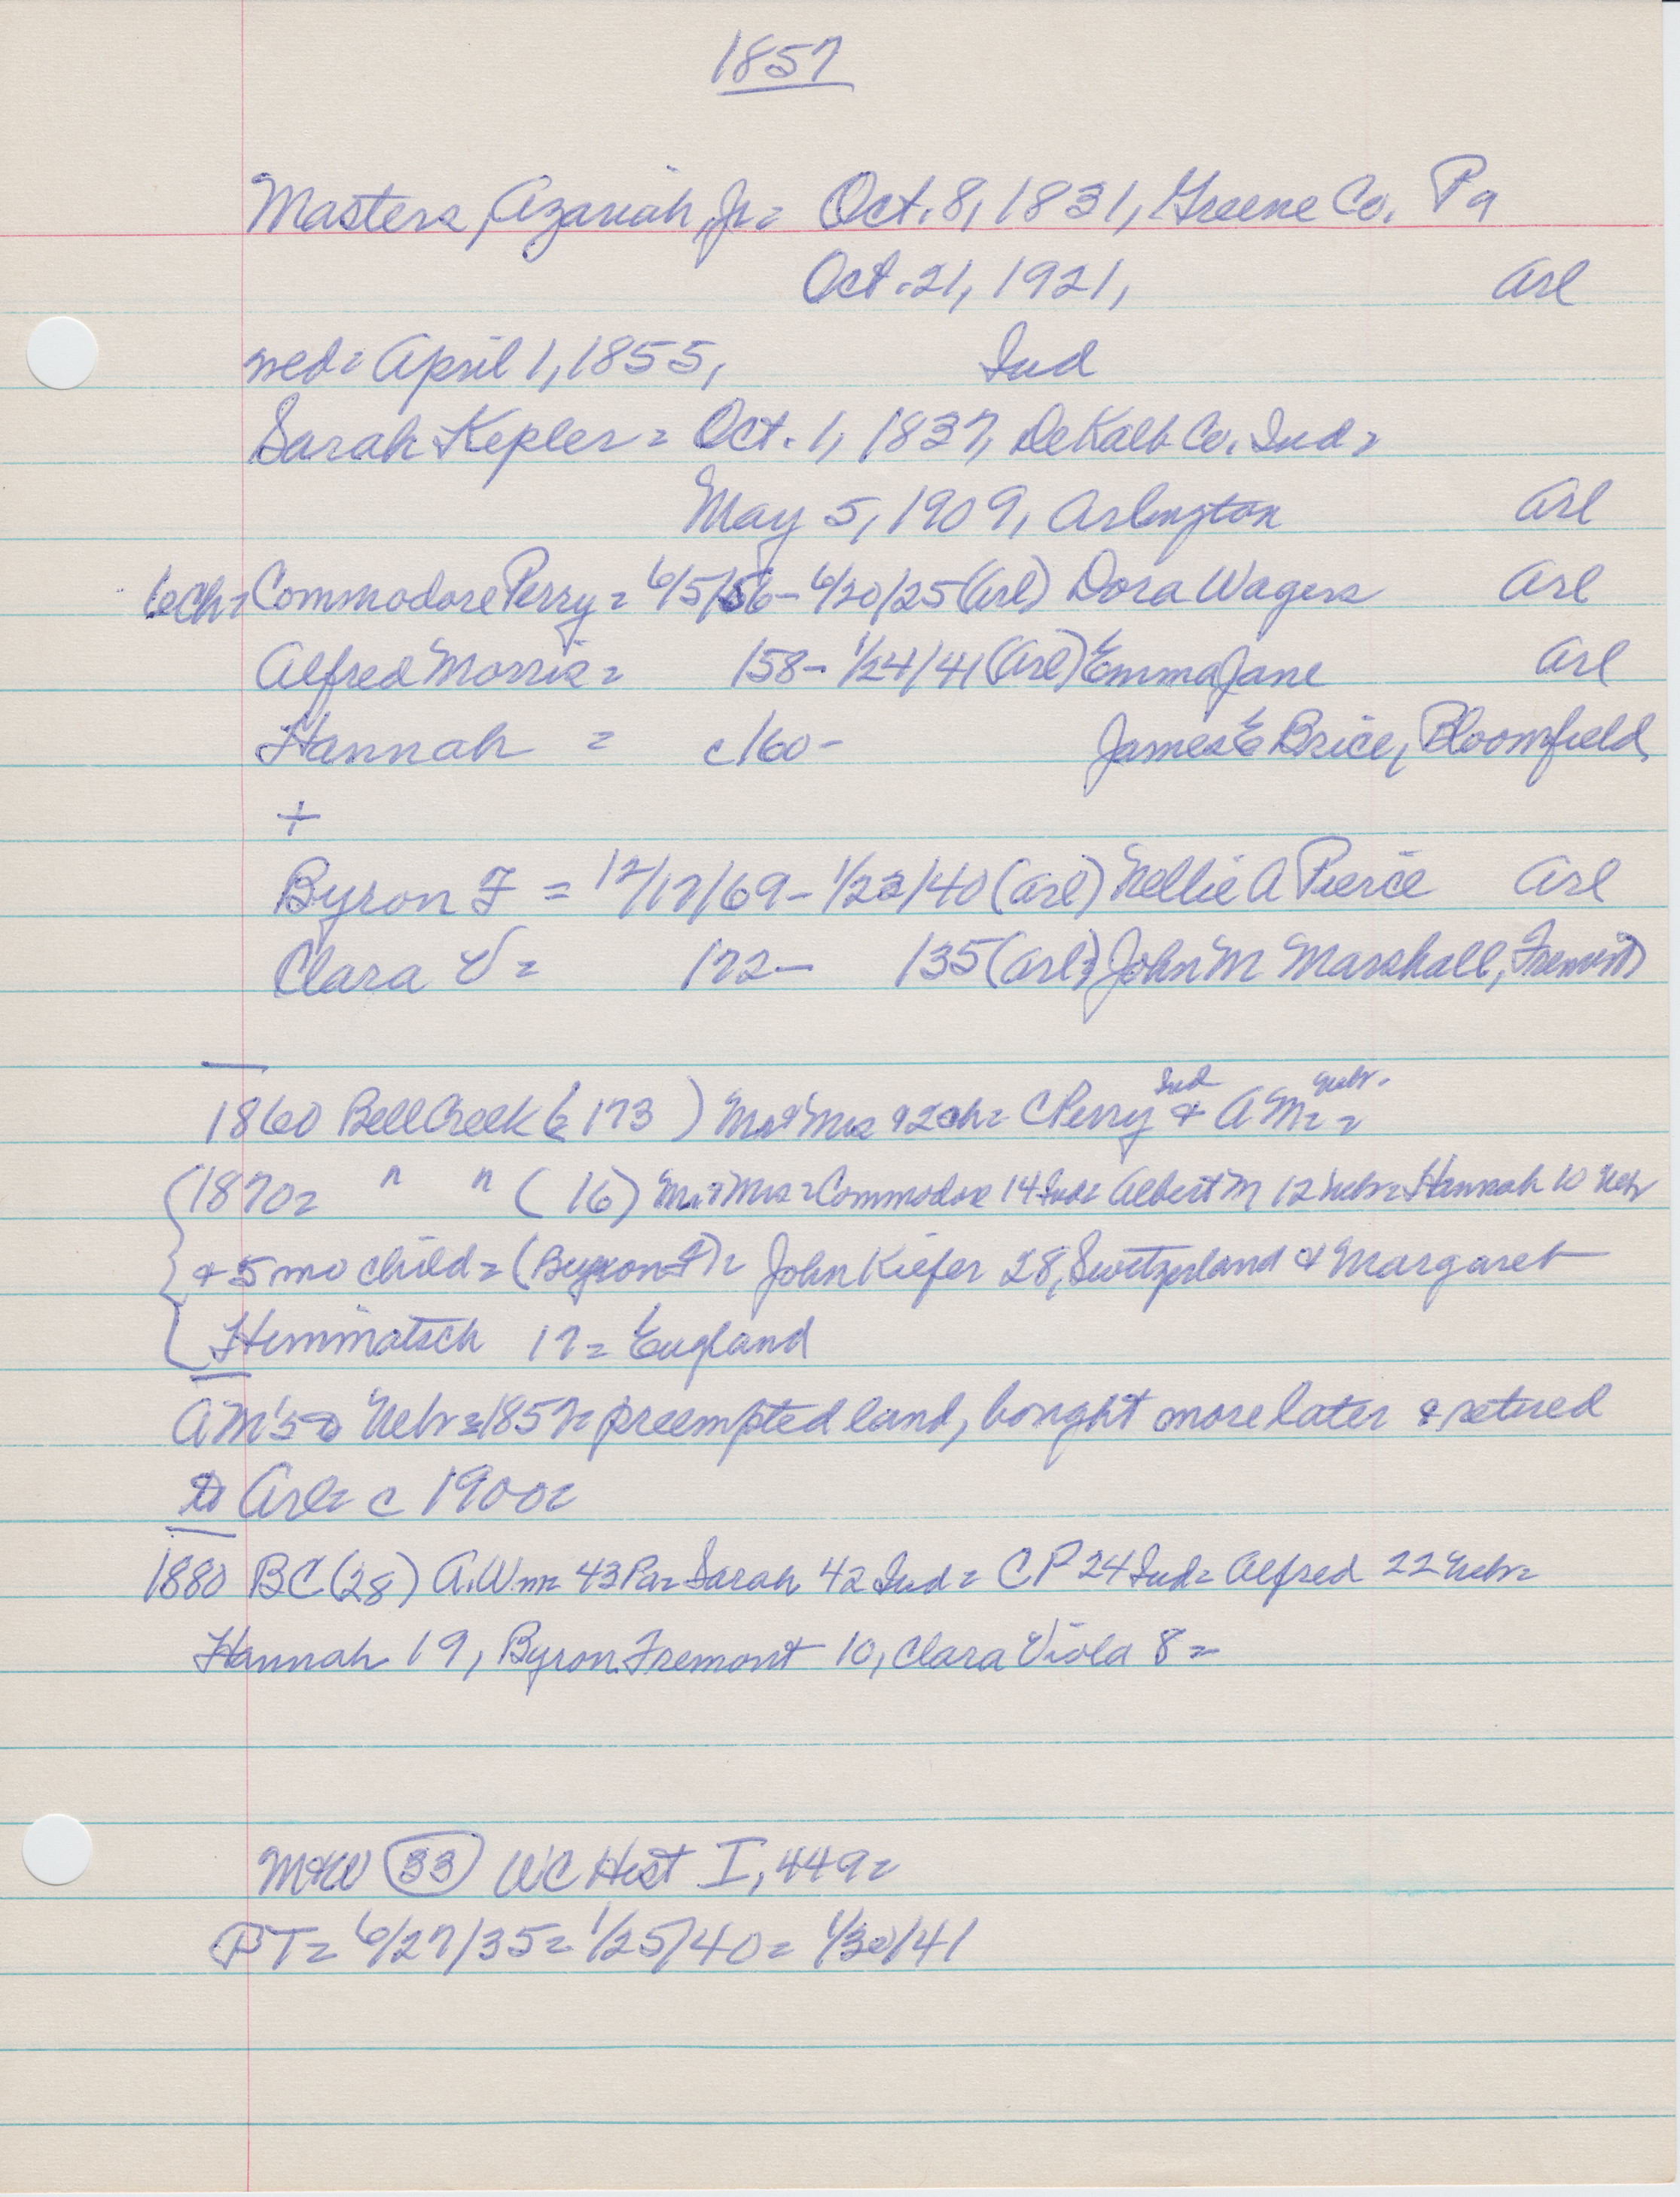 1857
Masters, Azariah, Jr = Oct. 8, 1831, Greene Co. Pa
Oct. 21, 1921, Arl
wed = April 1, 1855, Ind
Sarah Kepler = Oct. 1, 1837, DeKalb Co. Ind =
May 5, 1909, Arlington Arl
6ch = Commodore Perry = 6/5/56 - 6/20/25 (Arl) Dora Wagers Arl
Alfred Morris = /58 - 1/24/41 (Arl) Emma Jane Arl
Hannah = c/60 - James E Brice, Bloomfield
+
Byron F = 12/17/69 - 1/22/40 (Arl) Nellie A Pierce Arl
Clara V = /72 - /35 (Arl) John M Marshall, Fremont
1860 Bell Creek (173) Mr & Mrs & 2ch = C Perry Ind & A M = Nebr.
1870 = " " (16) Mr & Mrs = Commodore 14 Ind = Albert M 12 Nebr = Hannah 10 Nebr
& 5 mo child = (Byron F) = John Kiefer 28, Switzerland & Margaret
Himmatsch 17 = England
AM's Nebr = 1857 = preempted land, bought more later & retired
to Arl = c 1900 =
1880 BC (28) A. Wm 43 Pa = Sarah 42 Ind = CP 24 Ind = Alfred 22 Nebr =
Hannah 19, Byron Fremont 10, Clara Viola 8 =
M&W (33) WC Hist I, 449 =
PT = 6/27/35 = 1/25/40 = 1/30/41